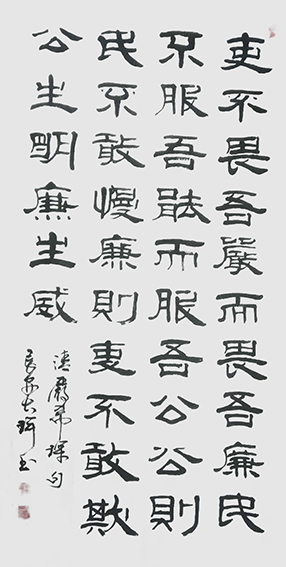 吏不畏吾嚴而畏吾廉民
不服吾能而服吾公公則
民不敢慢廉則吏不敢欺
公生明廉生威